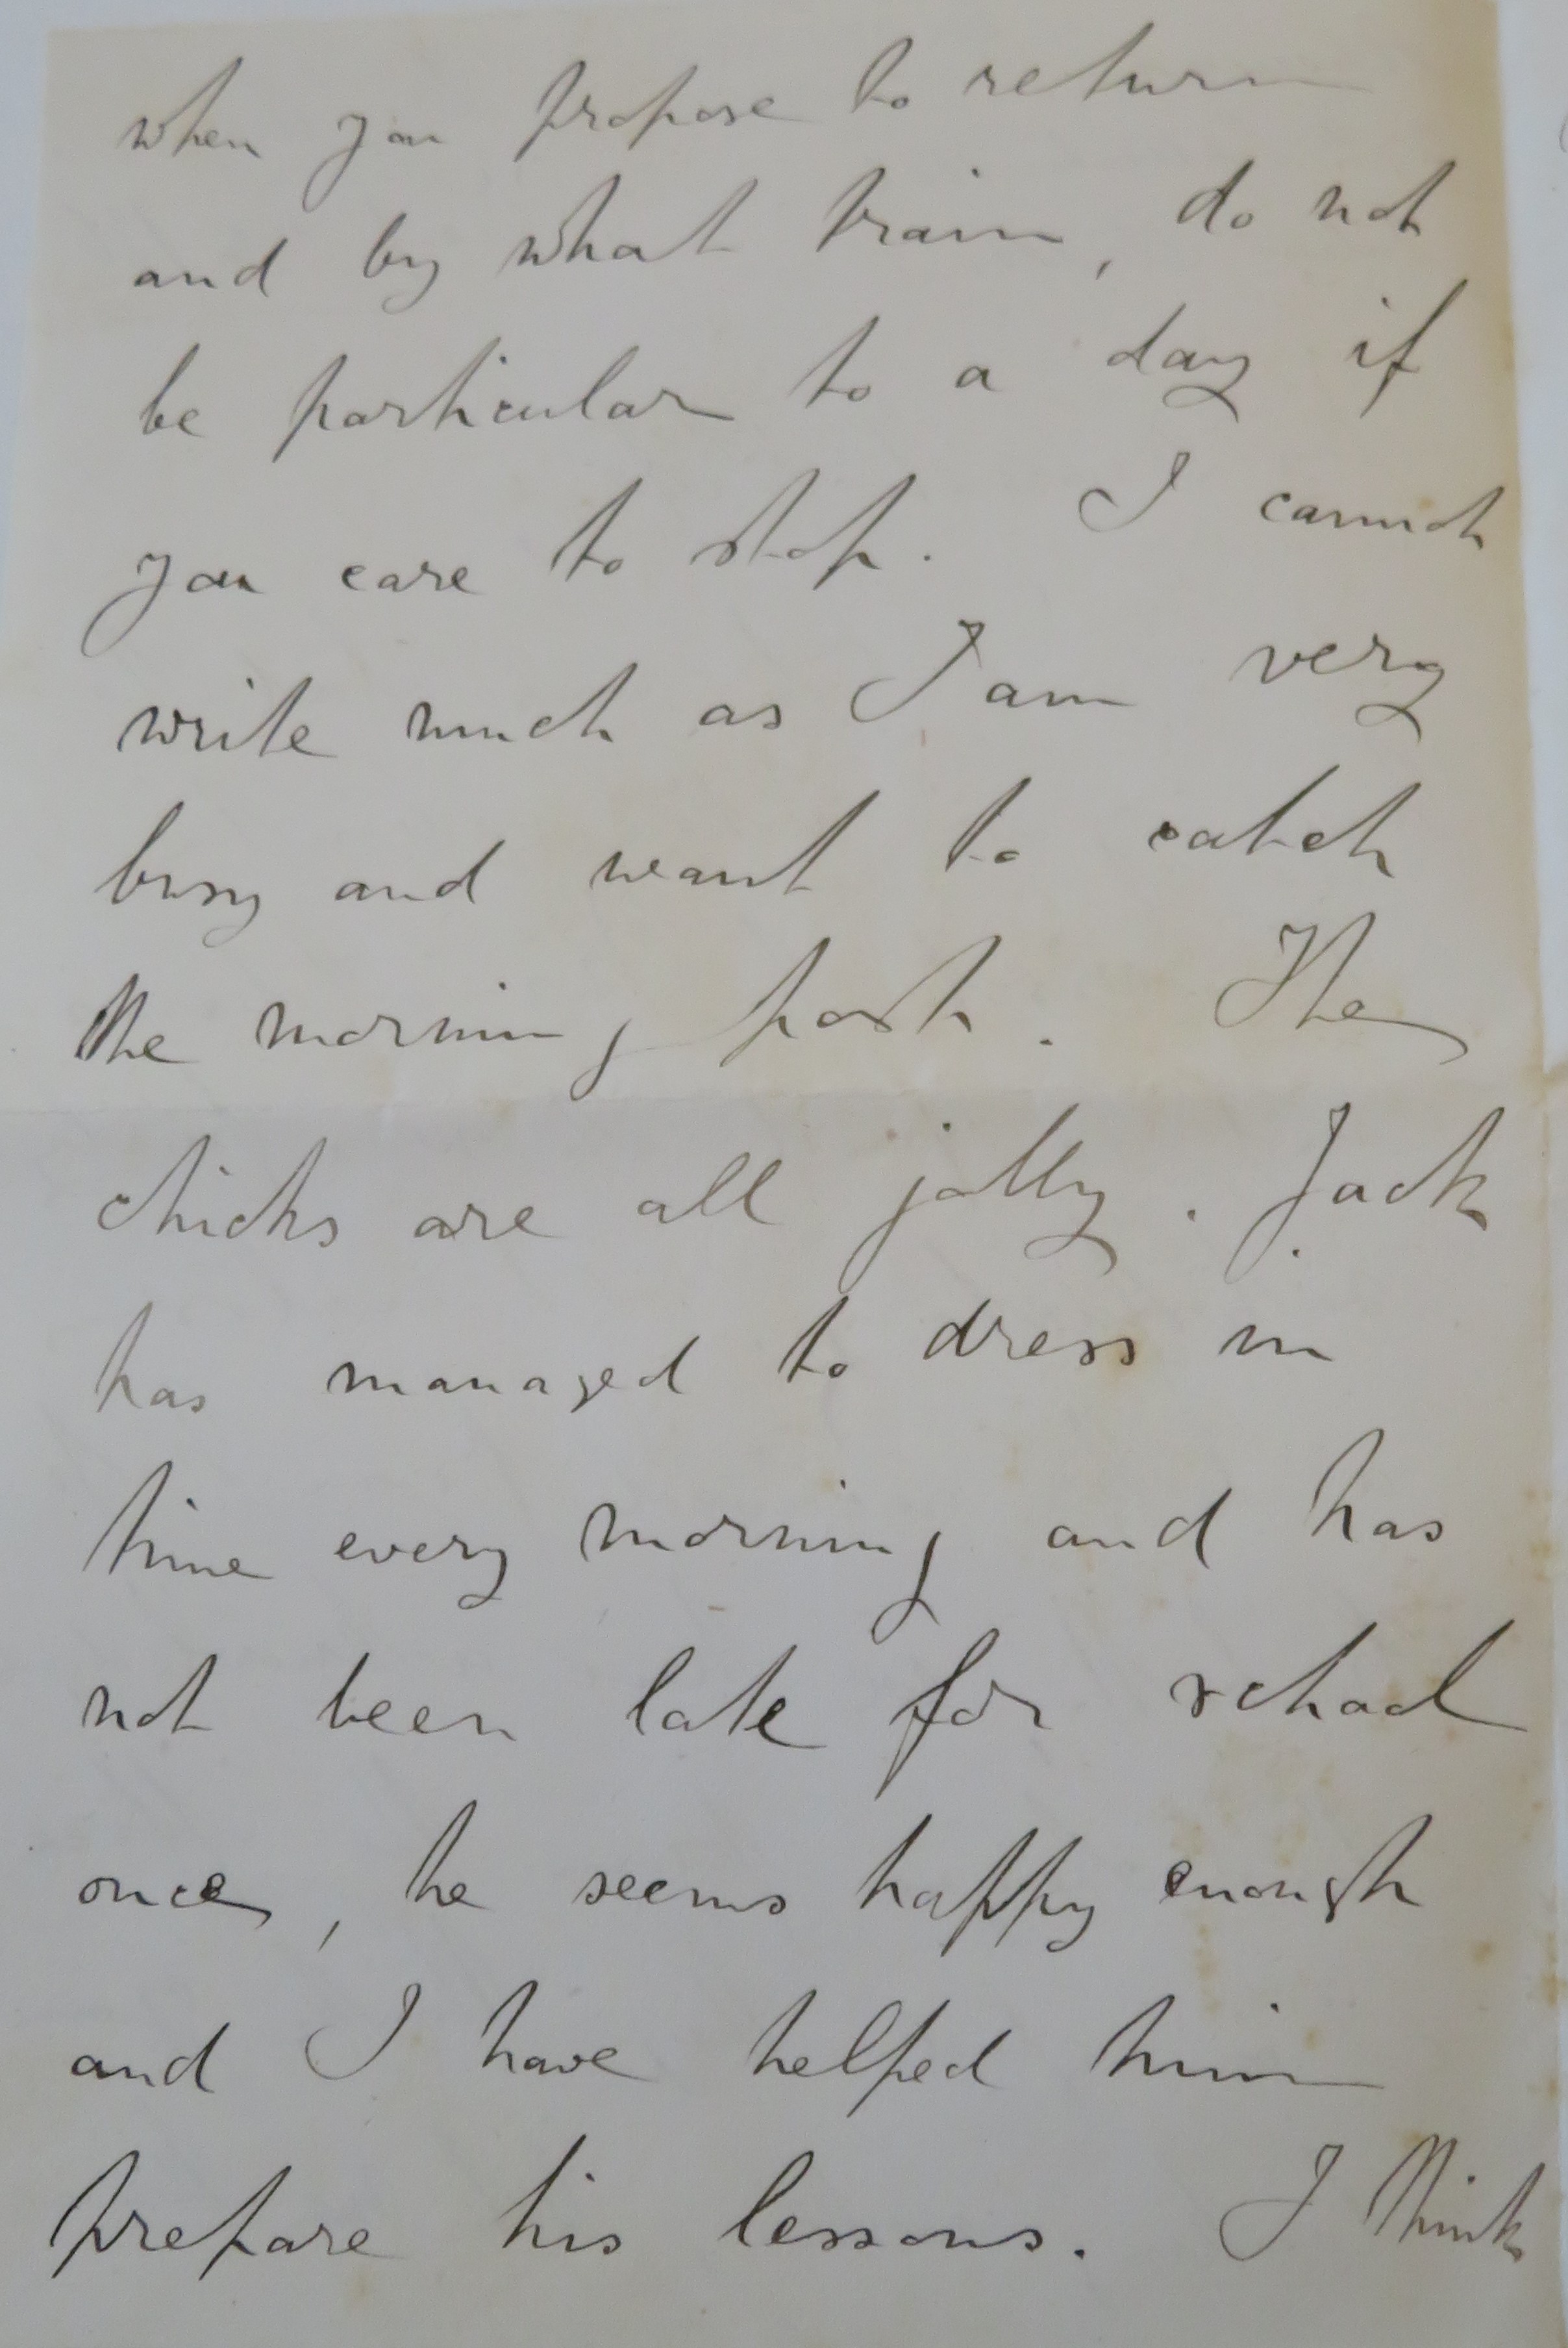 when you propose to return
and by what train, do not
be particular to a day if
you care to stop. I cannot
write much as I am very
busy and want to catch
the morning post. The
chicks are all jolly. Jack
has managed to dress in
time every morning and has
not been late for school
once, he seems happy enough
and I have helped him
prepare his lessons. I think